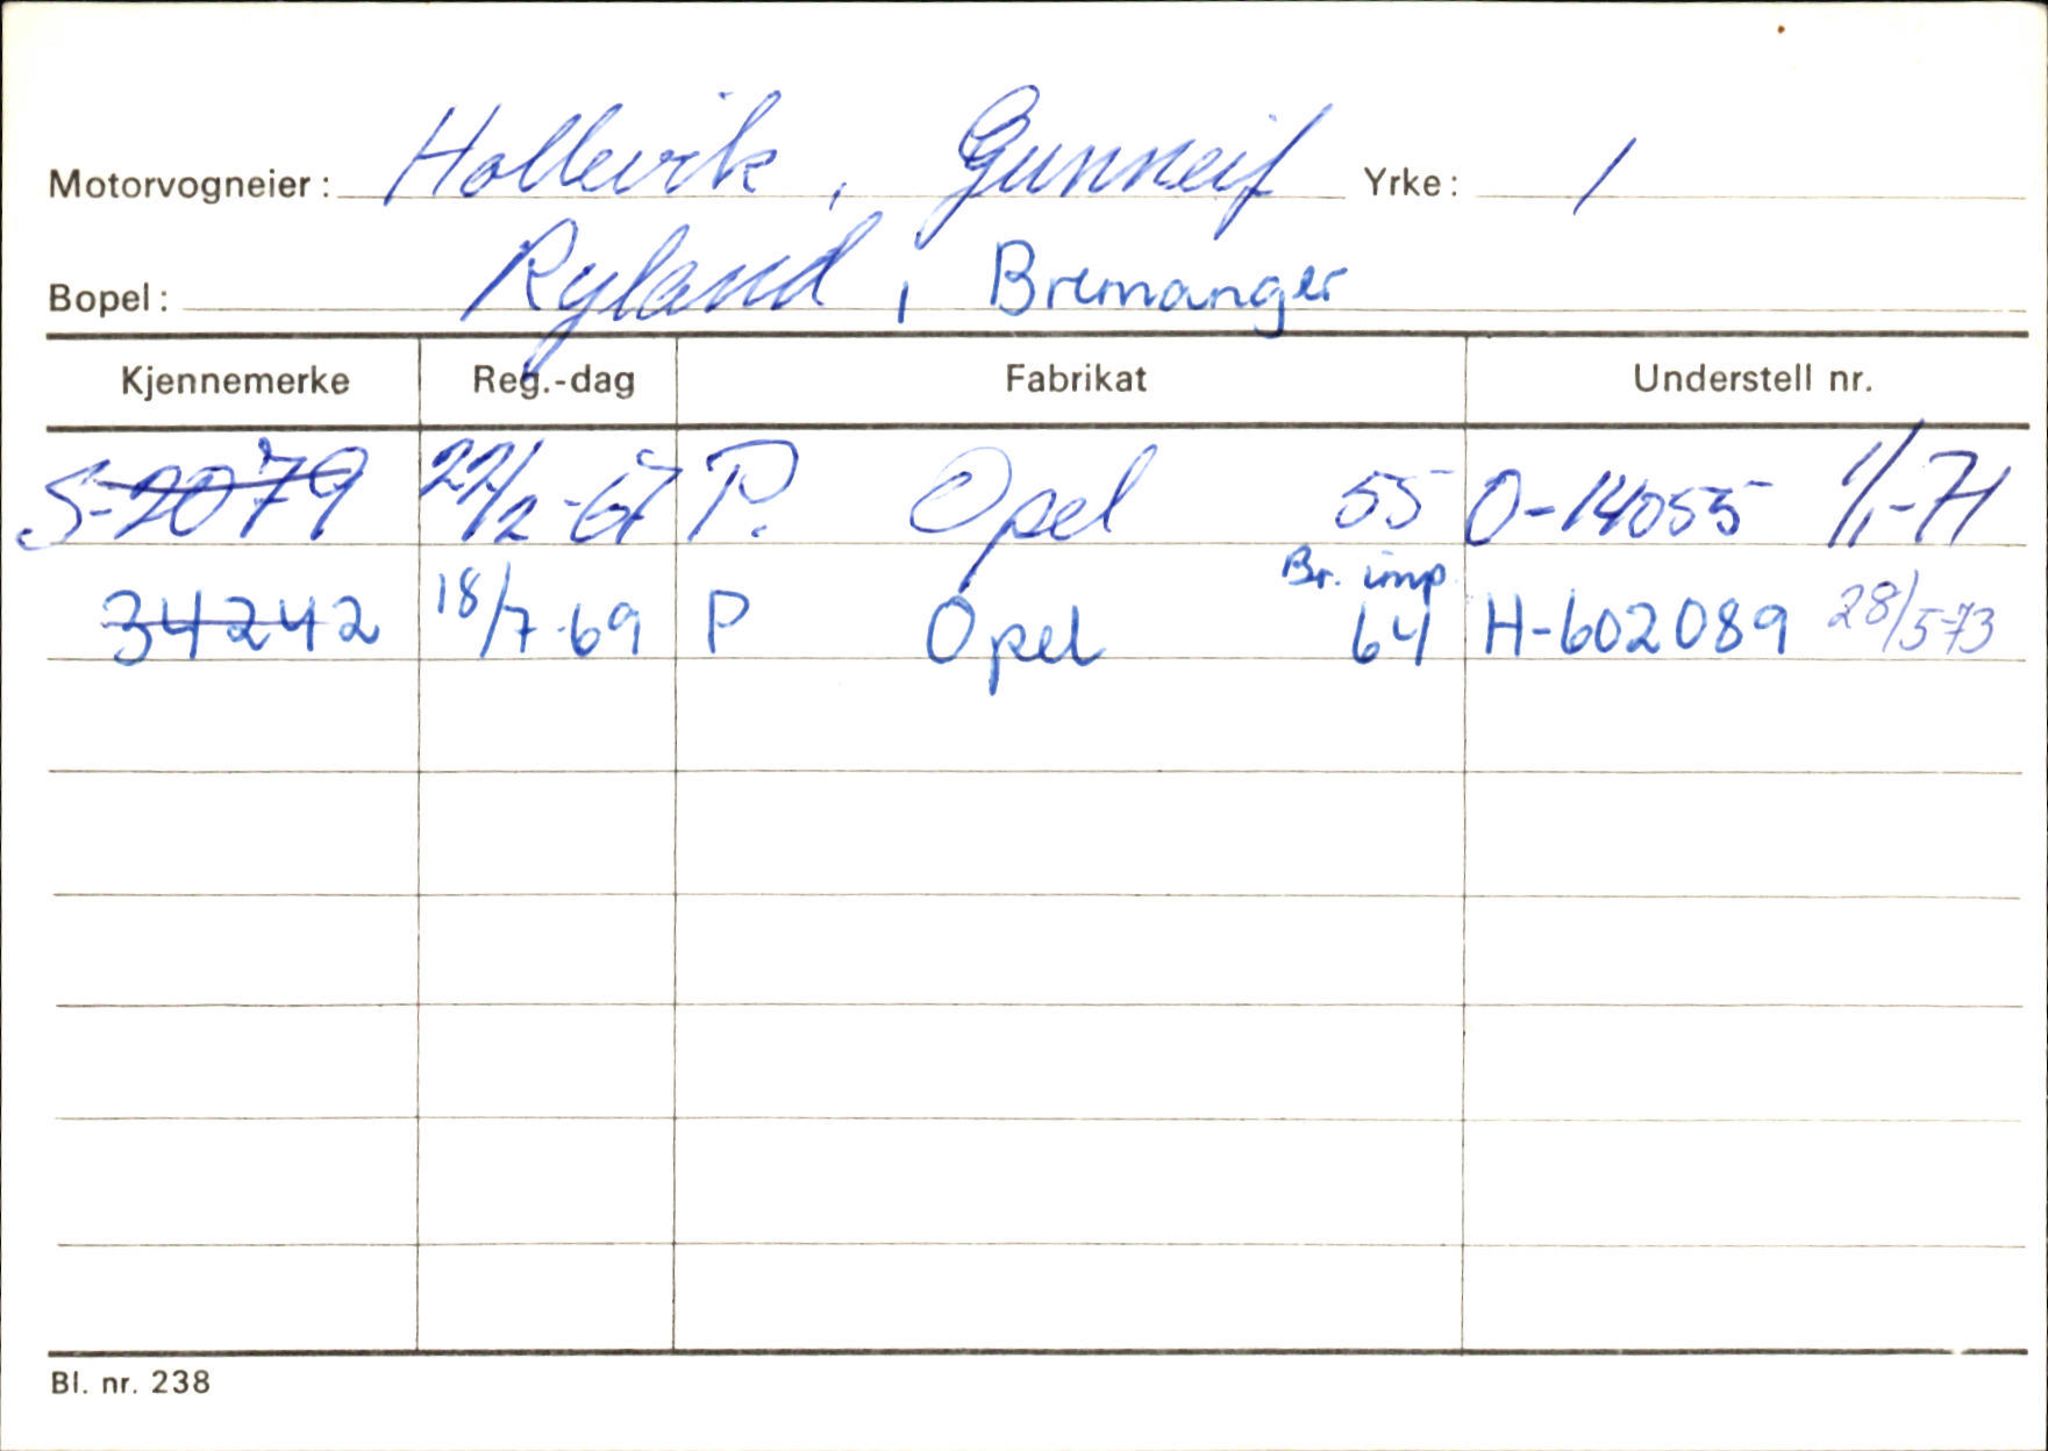 Motorvogneier: Hollevik, Gunneif Yrke: 1
Bopel: Ryland, Bremanger
Kjennemerke Reg.-dag Fabrikat Understell nr.
S-2079 22/2-67 P. Opel 55 O-14055 1/1-71
Br. imp.
34242 18/7-69 P Opel 64 H-602089 28/5-73
Bl. nr. 238